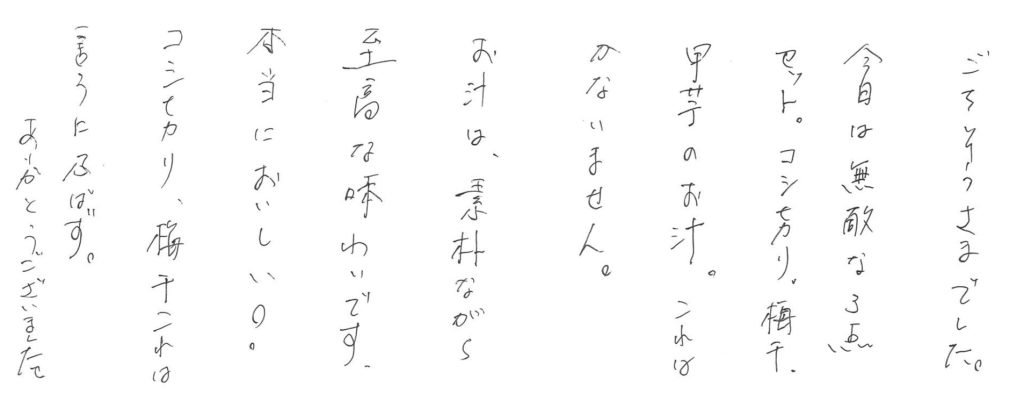 ごちそうさまでした。
今日は無敵な3点
セット。コシヒカリ。梅干、
里芋のお汁。これは
かないません。
お汁は、素朴ながら
至高な味わいです、
本当においしいの。
コシヒカリ、梅干これは
言うに及ばす。
ありがとうございました